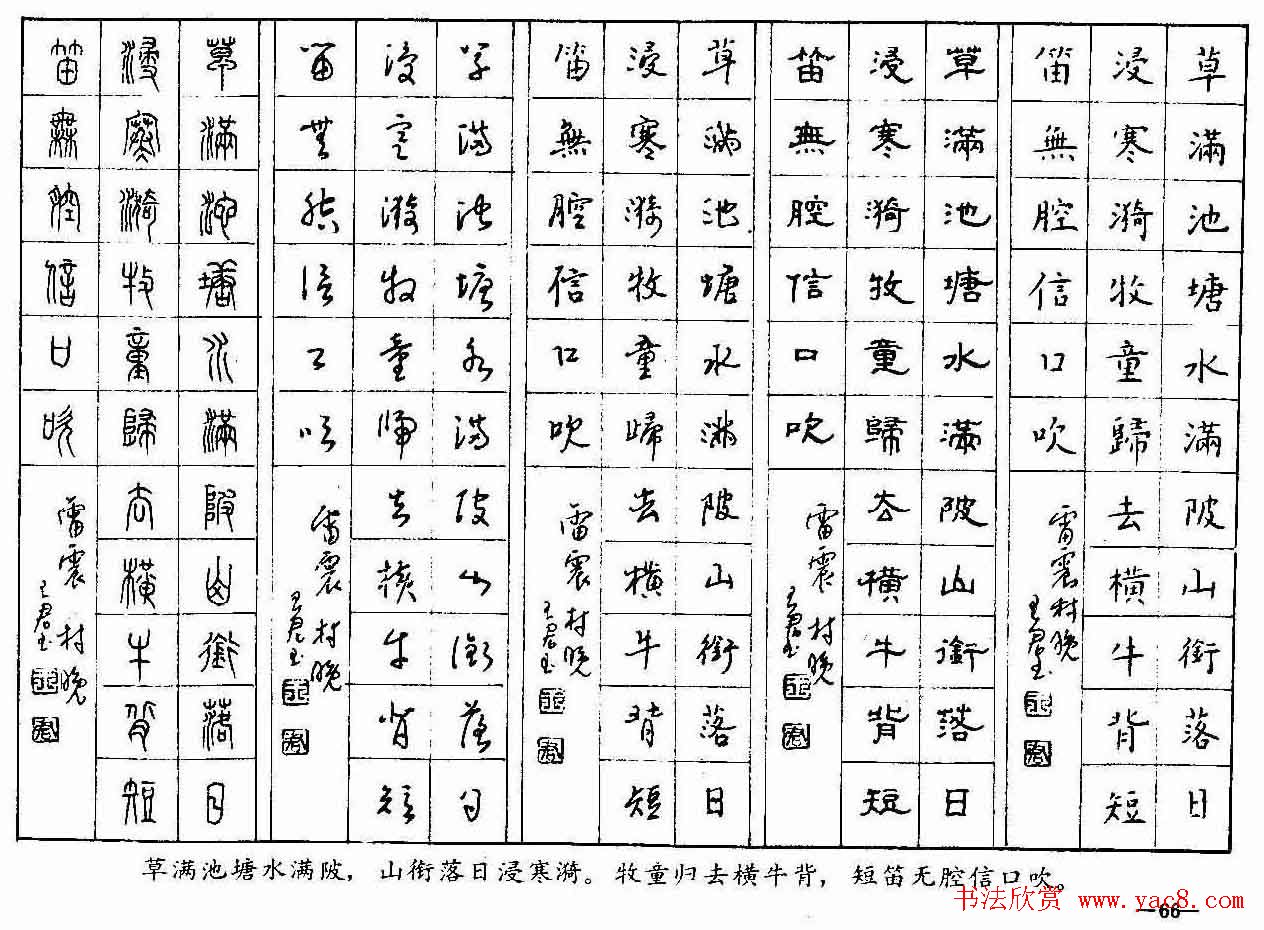 草滿池塘水滿陂山銜落日
浸寒漪牧童歸去橫牛背短
笛無腔信口吹
雷震村晚
王君書
草滿池塘水滿陂山銜落日
浸寒漪牧童歸去橫牛背短
笛無腔信口吹
雷震村晚
王君書
草滿池塘水滿陂山銜落日
浸寒漪牧童歸去橫牛背短
笛無腔信口吹
雷震村晚
王君書
草滿池塘水滿陂山銜落日
浸寒漪牧童歸去橫牛背短
笛無腔信口吹
雷震村晚
王君書
草滿池塘水滿陂山銜落日
浸寒漪牧童歸去橫牛背短
笛無腔信口吹
雷震村晚
王君書
草满池塘水满陂，山衔落日浸寒漪。牧童归去横牛背，短笛无腔信口吹。
书法欣赏 www.yac8.com
—66—